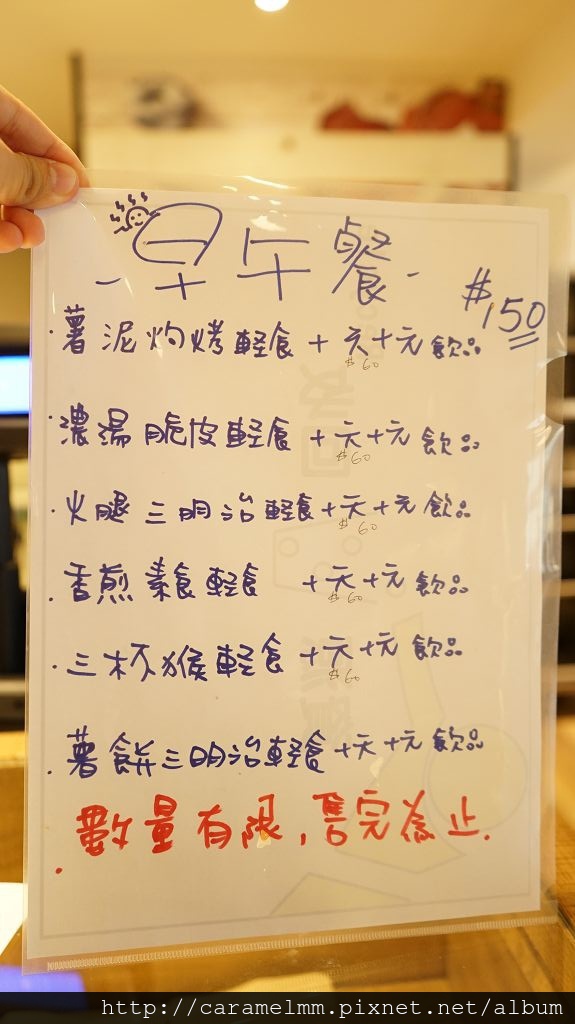 - 早午餐 -
$150
· 薯泥灼烤輕食 + 天十元飲品
$60
· 濃湯脆皮輕食 + 天十元飲品
$60
· 火腿三明治輕食 + 天十元飲品
$60
. 香煎素食輕食 + 天十元飲品
$60
. 三杯猴輕食 + 天十元飲品
$60
. 薯餅三明治輕食 + 天十元飲品
. 數量有限,售完為止.
http://caramelmm.pixnet.net/album